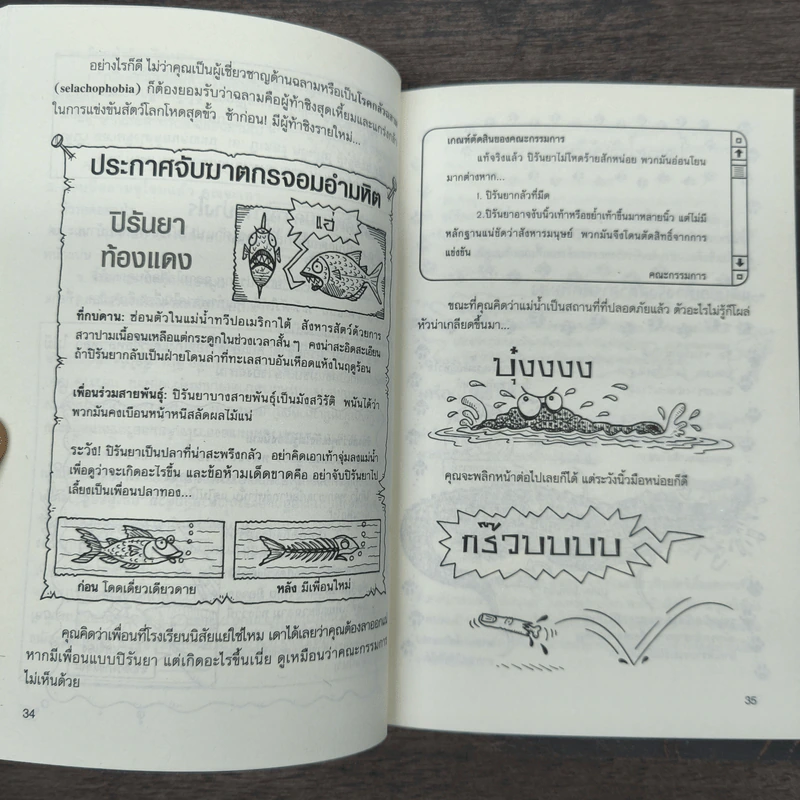 อย่างไรก็ดี ไม่ว่าคุณเป็นผู้เชี่ยวชาญด้านฉลามหรือเป็นโรคกลัวฉลาม
(selachophobia) ก็ต้องยอมรับว่าฉลามคือผู้ท้าชิงสุดเหี้ยมและแกร่งกล้า
ในการแข่งขันสัตว์โลกโหดสุดขั้ว ช้าก่อน! มีผู้ท้าชิงรายใหม่...
ประกาศจับฆาตกรจอมอำมหิต
ปิรันยา
ท้องแดง
แฮ่
ที่กบดาน: ซ่อนตัวในแม่น้ำทวีปอเมริกาใต้ สังหารสัตว์ด้วยการ
สวาปามเนื้อจนเหลือแต่กระดูกในช่วงเวลาสั้นๆ คงน่าสะอิดสะเอียน
ถ้าปิรันยากลับเป็นฝ่ายโดนล่าที่ทะเลสาบอันเหือดแห้งในฤดูร้อน
เพื่อนร่วมสายพันธุ์: ปิรันยาบางสายพันธุ์เป็นมังสวิรัติ พนันได้ว่า
พวกมันคงเบือนหน้าหนีสลัดผลไม้แน่
ระวัง! ปิรันยาเป็นปลาที่น่าสะพรึงกลัว อย่าคิดเอาเท้าจุ่มลงแม่น้ำ
เพื่อดูว่าจะเกิดอะไรขึ้น และข้อห้ามเด็ดขาดคือ อย่าจับปิรันยาไป
เลี้ยงเป็นเพื่อนปลาทอง...
ก่อน โดดเดี่ยวเดียวดาย
หลัง มีเพื่อนใหม่
คุณคิดว่าเพื่อนที่โรงเรียนนิสัยแย่ใช่ไหม เดาได้เลยว่าคุณต้องลาออกแน่
หากมีเพื่อนแบบปิรันยา แต่เกิดอะไรขึ้นเนี่ย ดูเหมือนว่าคณะกรรมการ
ไม่เห็นด้วย
34
เกณฑ์ตัดสินของคณะกรรมการ
แท้จริงแล้ว ปิรันยาไม่โหดร้ายสักหน่อย พวกมันอ่อนโยน
มากต่างหาก...
1. ปิรันยากลัวที่มืด
2.ปิรันยาอาจงับนิ้วเท้าหรือขย้ำเท้าขึ้นมาหลายนิ้ว แต่ไม่มี
หลักฐานแน่ชัดว่าสังหารมนุษย์ พวกมันจึงโดนตัดสิทธิ์จากการ
แข่งขัน
คณะกรรมการ
ขณะที่คุณคิดว่าแม่น้ำเป็นสถานที่ที่ปลอดภัยแล้ว ตัวอะไรไม่รู้ก็โผล่
หัวน่าเกลียดขึ้นมา...
บุ๋งงงง
คุณจะพลิกหน้าต่อไปเลยก็ได้ แต่ระวังนิ้วมือหน่อยก็ดี
กร๊วบบบบ
35